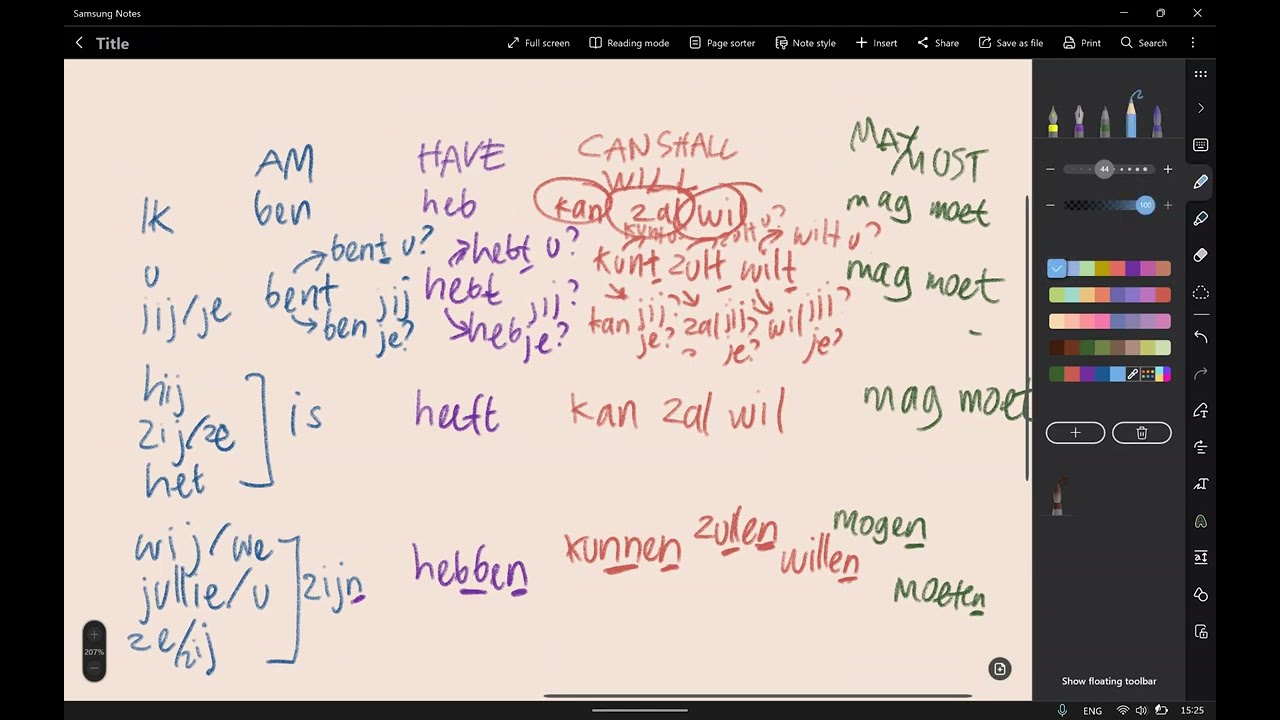 Samsung Notes
Title
Full screen Reading mode Page sorter Note style Insert Share Save as file Print Search
AM HAVE CAN SHALL WILL MAY/MUST
Ik ben heb kan zal wil mag moet
bent u? hebt u? kunt u? zult u? wilt u?
u
jij/je bent hebt kunt zult wilt mag moet
ben jij je? heb jij? je? kan jij? je? zal jij? je? wil jij? je?
hij
zij/ze is heeft kan zal wil mag moet
het
wij/we
jullie/u zijn hebben kunnen zullen willen mogen moeten
ze/zij
44
100
207%
Show floating toolbar
ENG 15:25